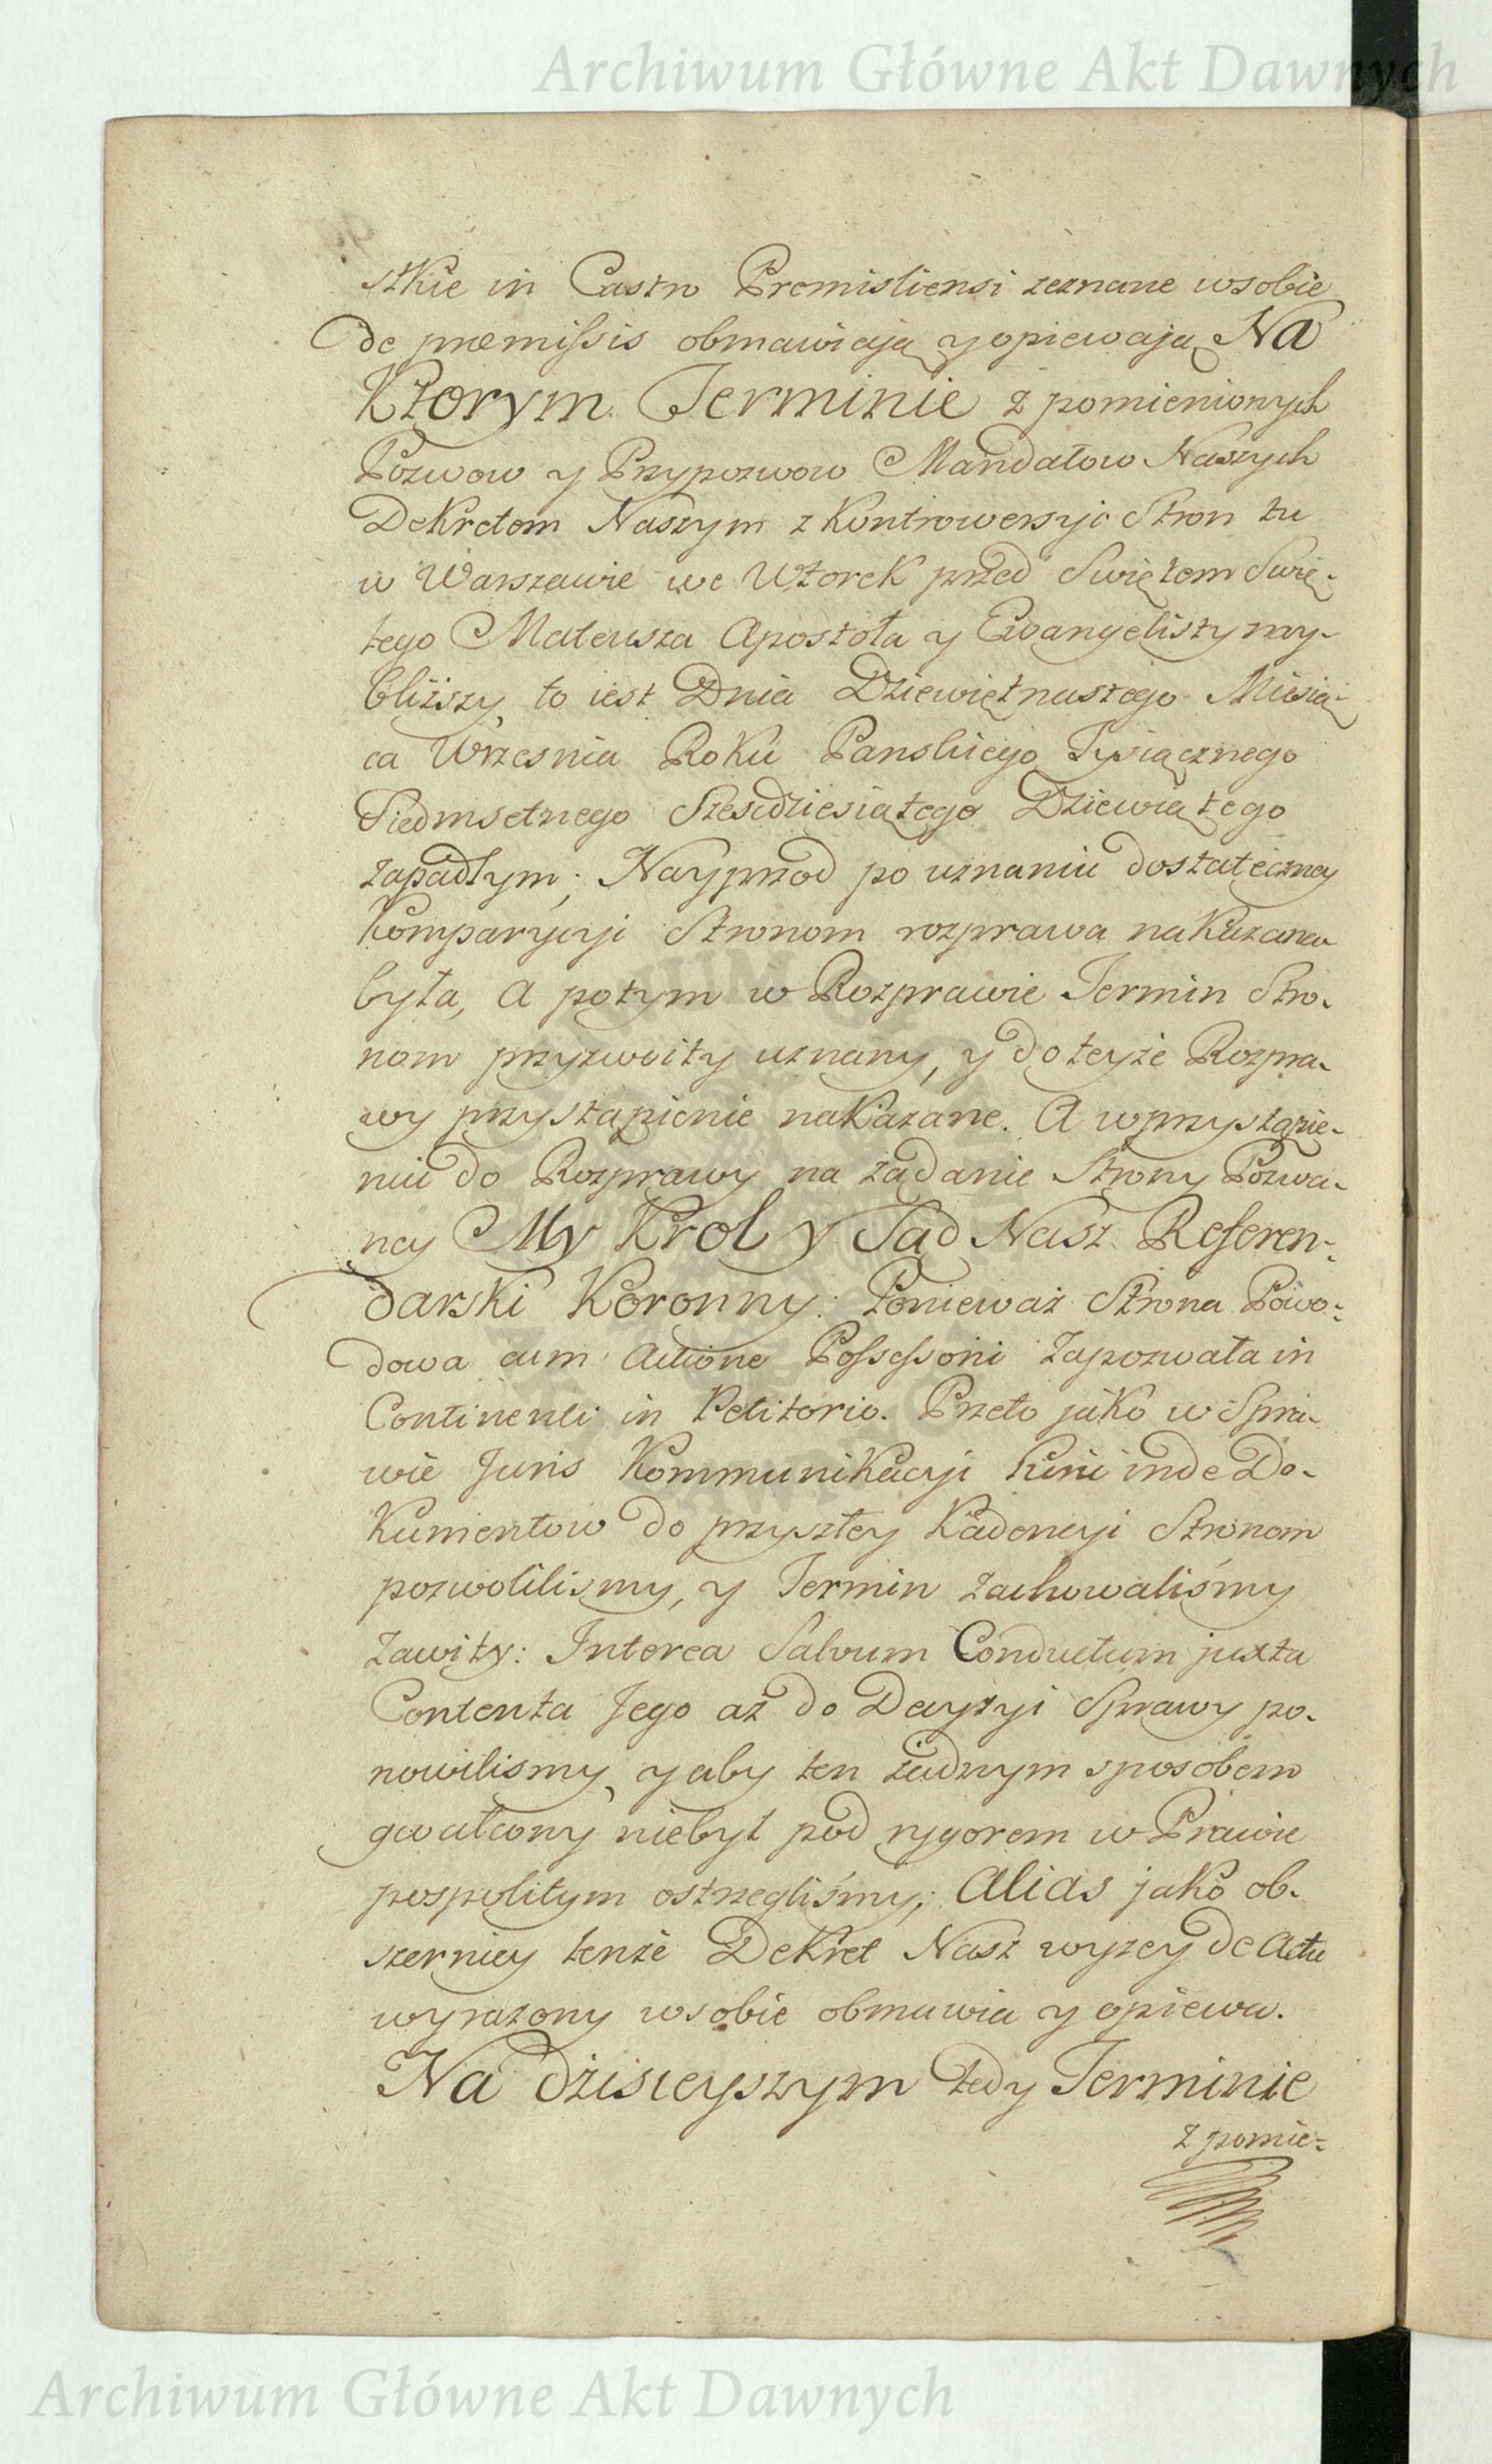 Archiwum Główne Akt Dawnych
stkie in Castro Premisliensi zeznane wsobie
de præmissis obmawiaią y opiewaią Na
Ktorym Terminie z pomienionych
Pozwow y Przypozwow Mandatow Naszych
Dekretem Naszym z Kontrowersyi Stron tu
w Warszawie we Wtorek przed Swiętem Swię-
tego Mateusza Apostoła y Ewangelisty nay-
bliższy, to iest Dnia Dziewiętnastego Miesią-
ca Wrzesnia Roku Panskiego Tysiącznego
Siedmsetnego Szescdziesiątego Dziewiątego
zapadłym; Nayprzod po uznaniu dostateczney
Komparycyi Stronom rozprawa nakazana
była, A potym w Rozprawie Termin Stro-
nom przyzwoity uznany, y do teyże Rozpra-
wy przystąpienie nakazane. A wprzystąpie-
niu do Rozprawy na żądanie Strony Pozwa-
ney My Krol y Sąd Nasz Referen-
darski Koronny: Ponieważ Strona Powo-
dowa cum Actione Possessorii zapozwała in
Continenti in Petitorio. Przeto jako w Spra-
wie Juris Kommunikacyi hinc inde Do-
kumentow do przyszłey Kadencyi Stronom
pozwolilismy, y Termin zachowaliśmy
zawity: Interea Salvum Conductum juxta
Contenta Jego aż do Decyzyi Sprawy po-
nowilismy, y aby ten żadnym sposobem
gwałcony niebył pod rygorem w Prawie
pospolitym ostrzegliśmy; Alias jako ob-
szerniey tenże Dekret Nasz wyzey de Actu
wyrażony wsobie obmawia y opiewa.
Na dzisieyszym tedy Terminie
z pomie-
Archiwum Główne Akt Dawnych